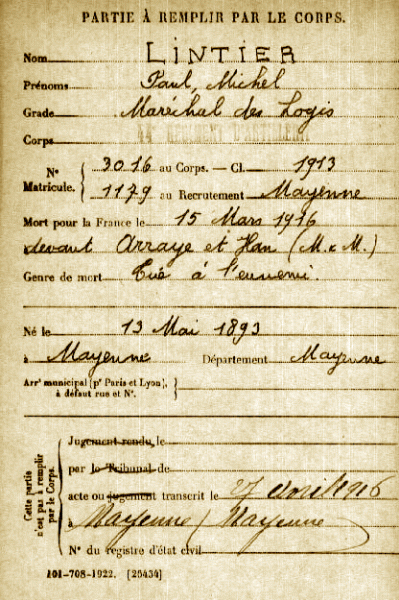 PARTIE À REMPLIR PAR LE CORPS.
Nom LINTIER
Prénoms Paul, Michel
Grade Maréchal des Logis
Corps 44 REGIMENT D'ARTILLERIE
N° Matricule. { 3016 au Corps. — Cl. 1913
1179 au Recrutement Mayenne
Mort pour la France le 15 Mars 1916
devant Arraye et Han (M. & M.)
Genre de mort Tué à l'ennemi.
Né le 13 Mai 1893
à Mayenne Département Mayenne
Arrt municipal (pr Paris et Lyon),
à défaut rue et N°. }
Cette partie n'est pas à remplir par le Corps. {
Jugement rendu le
par le Tribunal de
acte ou jugement transcrit le 27 avril 1916
à Mayenne (Mayenne
N° du registre d'état civil
101-708-1922. [25434]